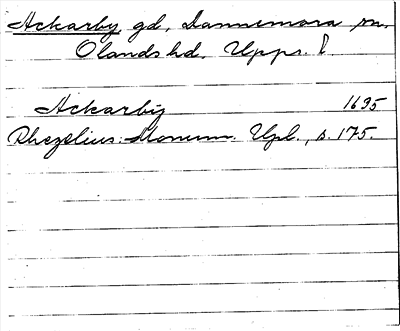 Ackarby, gd, Dannemora sn,
Olands hd. Upps. l
Ackarby 1635
Rhezelius: Monum. Upl., s. 175.